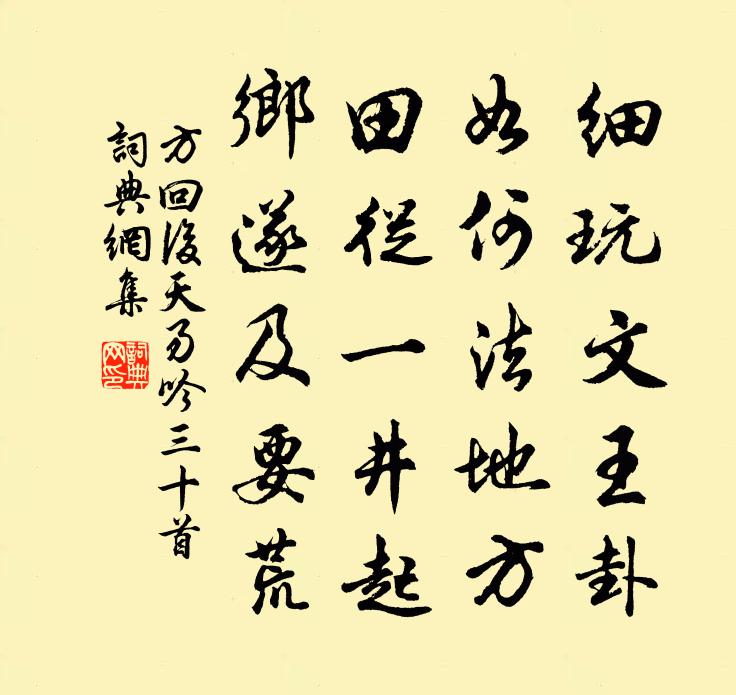 细玩文王卦
如何法地方
田從一井起
鄉遂及要荒
方回後天易吟三十首
詞典網集
詞典網印